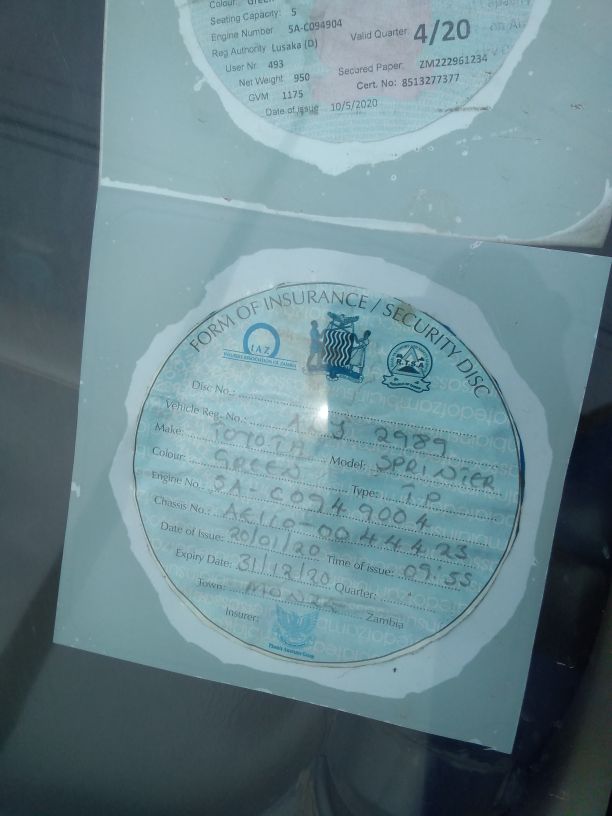 Colour: GREEN
Seating Capacity: 5
Engine Number 5A-C094904
Reg Authority Lusaka (D)
Valid Quarter 4/20
User Nr 493
Net Weight 950
Secured Paper: ZM222961234
GVM 1175
Cert. No: 8513277377
Date of issue 10/5/2020
FORM OF INSURANCE / SECURITY DISC
IAZ
INSURERS ASSOCIATION OF ZAMBIA
R.T.S.A
Disc No.:
Vehicle Reg. No. 2989
Make: TOYOTA Model: SPRINTER
Colour: GREEN Type: T.P
Engine No.: 5A-C0949004
Chassis No.: AE110-0044423
Date of Issue: 20/01/20 Time of issue: 09:55
Expiry Date: 31/12/20 Quarter:
Town: MONZE Zambia
Insurer: